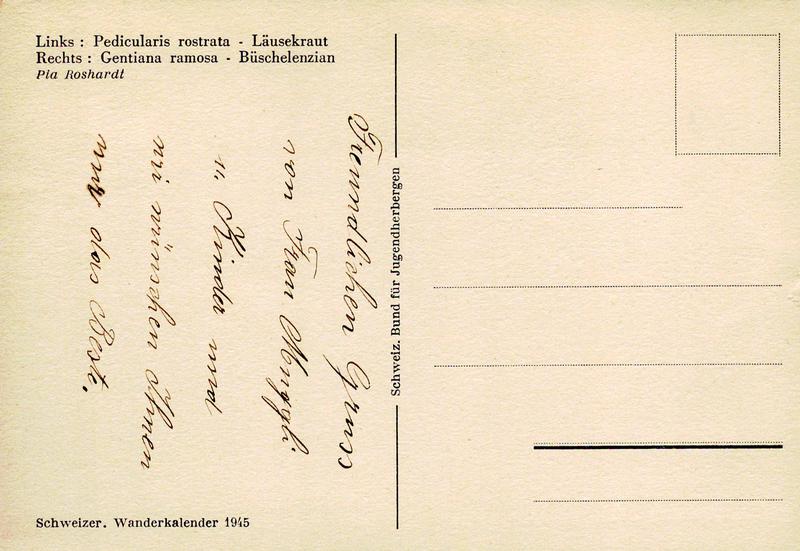 Links : Pedicularis rostrata - Läusekraut
Rechts : Gentiana ramosa - Büschelenzian
Pia Roshardt
Freundlichen Gruss
von Frau Muggli
u. Kinder und
wünschen Ihnen
nur das Beste.
Schweiz. Bund für Jugendherbergen
Schweizer. Wanderkalender 1945